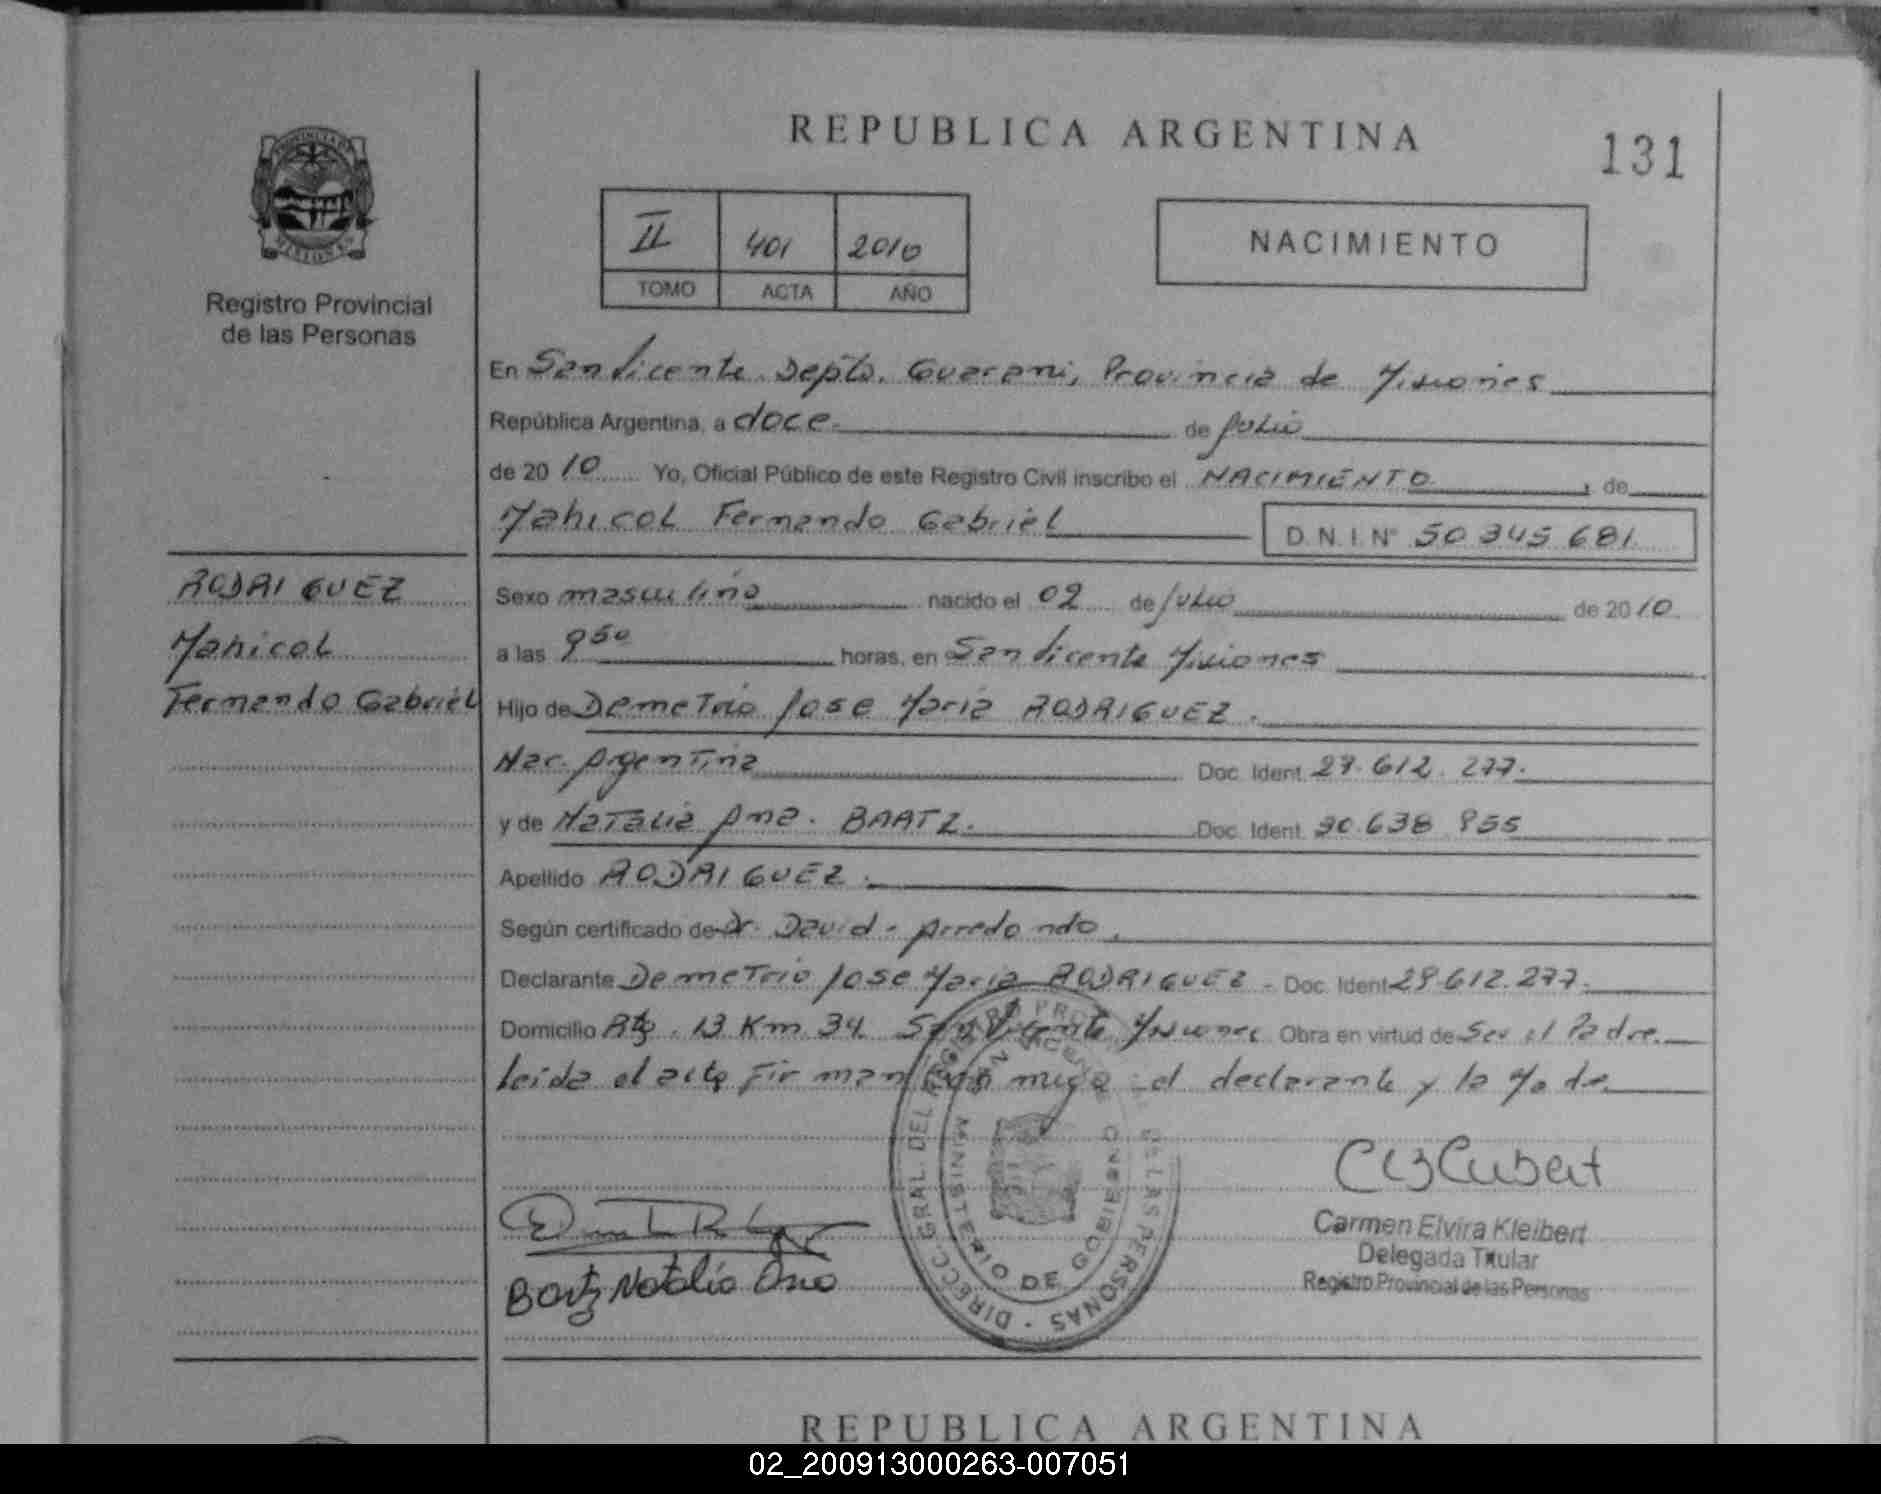 REPUBLICA ARGENTINA
131
II 401 2010
TOMO ACTA AÑO
NACIMIENTO
Registro Provincial
de las Personas
En San Vicente Depto. Guarani, Provincia de Misiones
República Argentina, a doce de Julio
de 2010 Yo, Oficial Público de este Registro Civil inscribo el NACIMIENTO, de
Mahicol Fernando Gabriel D.N.I. Nº 50 345 681
RODRIGUEZ
Mahicol
Fernando Gabriel
Sexo masculino nacido el 02 de Julio de 2010
a las 9 50 horas, en San Vicente Misiones
Hijo de Demetrio Jose Maria RODRIGUEZ.
Nac. Argentina Doc. Ident. 29.612.277.
y de Natalia Ana. BAATZ. Doc. Ident. 30.638 955
Apellido RODRIGUEZ.
Según certificado de Dr. David - Arredondo.
Declarante Demetrio Jose Maria RODRIGUEZ - Doc. Ident 29.612.277.
Domicilio 13 Km 34 San Vicente Misiones Obra en virtud de Ser el Padre.
leida el acta Firman con migo el declarante y la
Baatz Natalia Ana
Carmen Elvira Kleibert
Delegada Titular
Registro Provincial de las Personas
DIRECC. GRAL. DEL REGISTRO PROV. DE LAS PERSONAS
SAN VICENTE
MINISTERIO DE GOBIERNO
REPUBLICA ARGENTINA
02_200913000263-007051